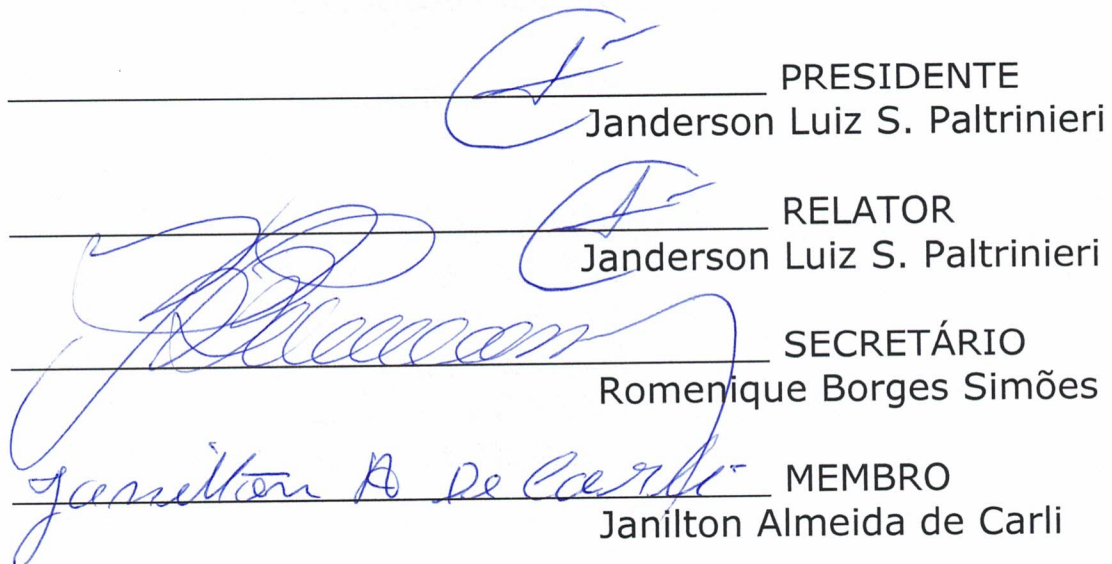 PRESIDENTE
Janderson Luiz S. Paltrinieri
RELATOR
Janderson Luiz S. Paltrinieri
SECRETÁRIO
Romenique Borges Simões
Janilton A De Carli MEMBRO
Janilton Almeida de Carli